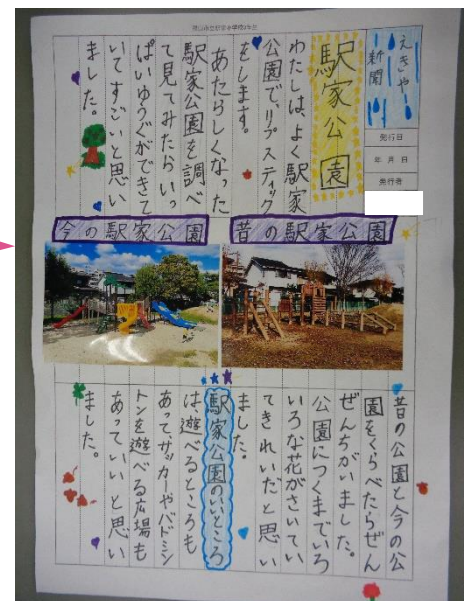 えきやー
新聞
発行日
年 月 日
発行者
駅家公園
わたしは、よく駅家
公園で、リプスティック
をします。
あたらしくなった
駅家公園を調べ
て見てみたらいっ
ぱいゆうぐができて
いてすごいと思い
ました。
昔の駅家公園
今の駅家公園
昔の公園と今の公
園をくらべたらぜん
ぜんちがいました。
公園につくまでいろ
いろな花がさいてい
てきれいだと思い
ました。
駅家公園のいいところ
は、遊べるところも
あってサッカーやバドミン
トンを遊べる広場も
あっていいと思い
ました。